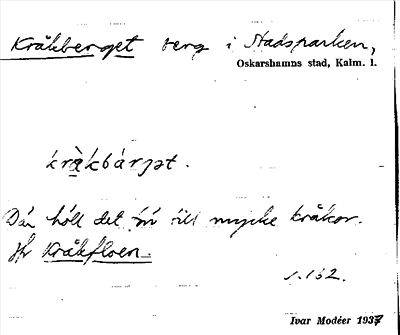 Kråkberget berg i Stadsparken,
Oskarshamns stad, Kalm. l.
kråkbärjət.
Där höll det till mycke kråkor.
Jfr Kråkfloen.
s. 152.
Ivar Modéer 1937